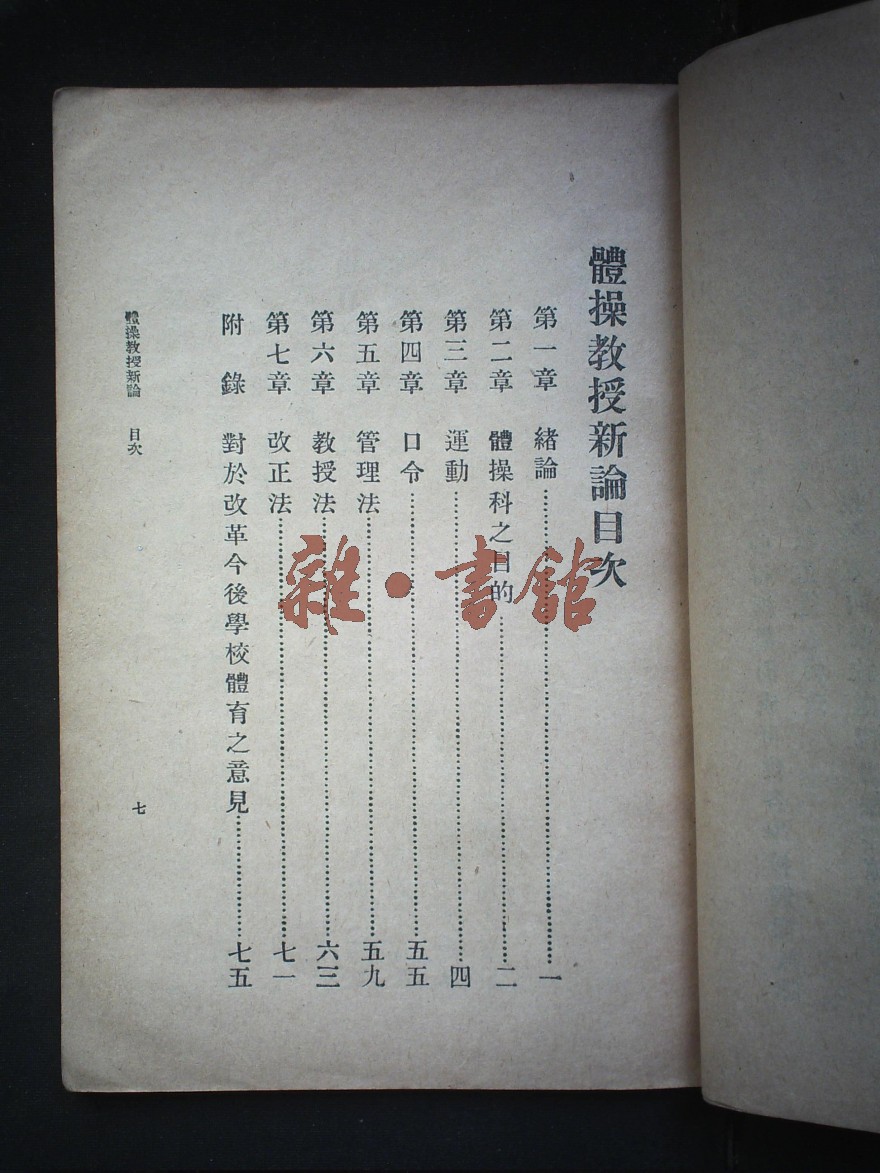 體操教授新論目次
第一章　緒論…………一
第二章　體操科之目的…………二
第三章　運動…………四
第四章　口令…………五五
第五章　管理法…………五九
第六章　教授法…………六三
第七章　改正法…………七一
附　錄　對於改革今後學校體育之意見…………七五
體操教授新論　目次
七
雜·書館